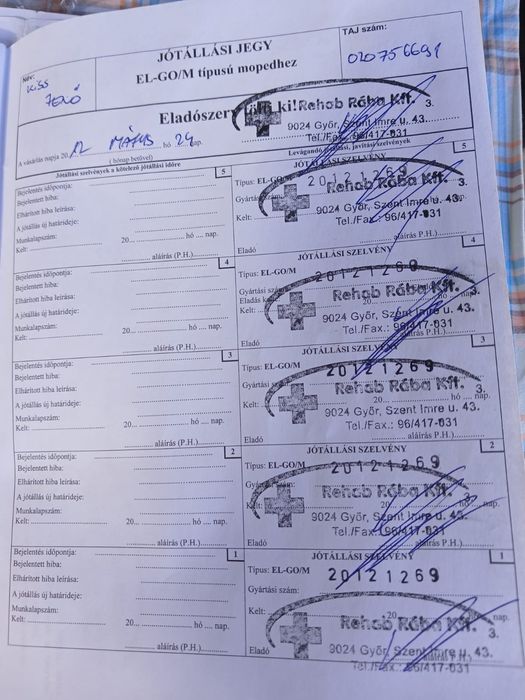 JÓTÁLLÁSI JEGY
EL-GO/M típusú mopedhez
Név:
Kiss
Jenő
TAJ szám:
020756691
Eladószerv
ki!
Rehab Rába Kft.
3.
9024 Győr, Szent Imre u. 43.
Tel./Fax.: 96/417-031
A vásárlás napja 20 12 MÁJUS hó 24 nap.
( hónap betűvel)
Jótállási szelvények a kötelező jótállási időre
Levágandó jótállási, javítási szelvények
Bejelentés időpontja:
5
Bejelentett hiba:
Elhárított hiba leírása:
A jótállás új határideje:
Munkalapszám:
Kelt: 20... hó .... nap.
aláírás (P.H.)
JÓTÁLLÁSI SZELVÉNY
5
Típus: EL-GO/M
20121269
Gyártási szám:
Rehab Rába Kft.
3.
9024 Győr, Szent Imre u. 43.
Kelt:
Tel./Fax.: 96/417-031
Eladó
aláírás P.H.)
Bejelentés időpontja:
4
Bejelentett hiba:
Elhárított hiba leírása:
A jótállás új határideje:
Munkalapszám:
Kelt: 20... hó .... nap.
aláírás (P.H.)
JÓTÁLLÁSI SZELVÉNY
4
Típus: EL-GO/M
20121269
Gyártási szám:
Eladás k
Rehab Rába Kft.
3.
Kelt:
9024 Győr, Szent Imre u. 43.
Tel./Fax.: 96/417-031
Eladó
aláírás P.H.)
Bejelentés időpontja:
3
Bejelentett hiba:
Elhárított hiba leírása:
A jótállás új határideje:
Munkalapszám:
Kelt: 20... hó .... nap.
aláírás (P.H.)
JÓTÁLLÁSI SZELVÉNY
3
Típus: EL-GO/M
20121269
Gyártási
Rehab Rába Kft.
3.
Kelt: hó nap.
9024 Győr, Szent Imre u. 43.
Tel./Fax.: 96/417-031
Eladó
aláírás (P.H.)
Bejelentés időpontja:
2
Bejelentett hiba:
Elhárított hiba leírása:
A jótállás új határideje:
Munkalapszám:
Kelt: 20... hó .... nap.
aláírás (P.H.)
JÓTÁLLÁSI SZELVÉNY
2
Típus: EL-GO/M
20121269
Gyártási szám:
Rehab Rába Kft.
3.
Kelt: 20 nap.
9024 Győr, Szent Imre u. 43.
Tel./Fax.: 96/417-031
Eladó
aláírás (P.H.)
Bejelentés időpontja:
1
Bejelentett hiba:
Elhárított hiba leírása:
A jótállás új határideje:
Munkalapszám:
Kelt: 20... hó .... nap.
aláírás (P.H.)
JÓTÁLLÁSI SZELVÉNY
1
Típus: EL-GO/M
20121269
Gyártási szám:
Kelt: 20 nap.
Rehab Rába Kft.
3.
Eladó
9024 Győr, Szent Imre u. 43.
aláírás P.H.)
Tel./Fax.: 96/417-031